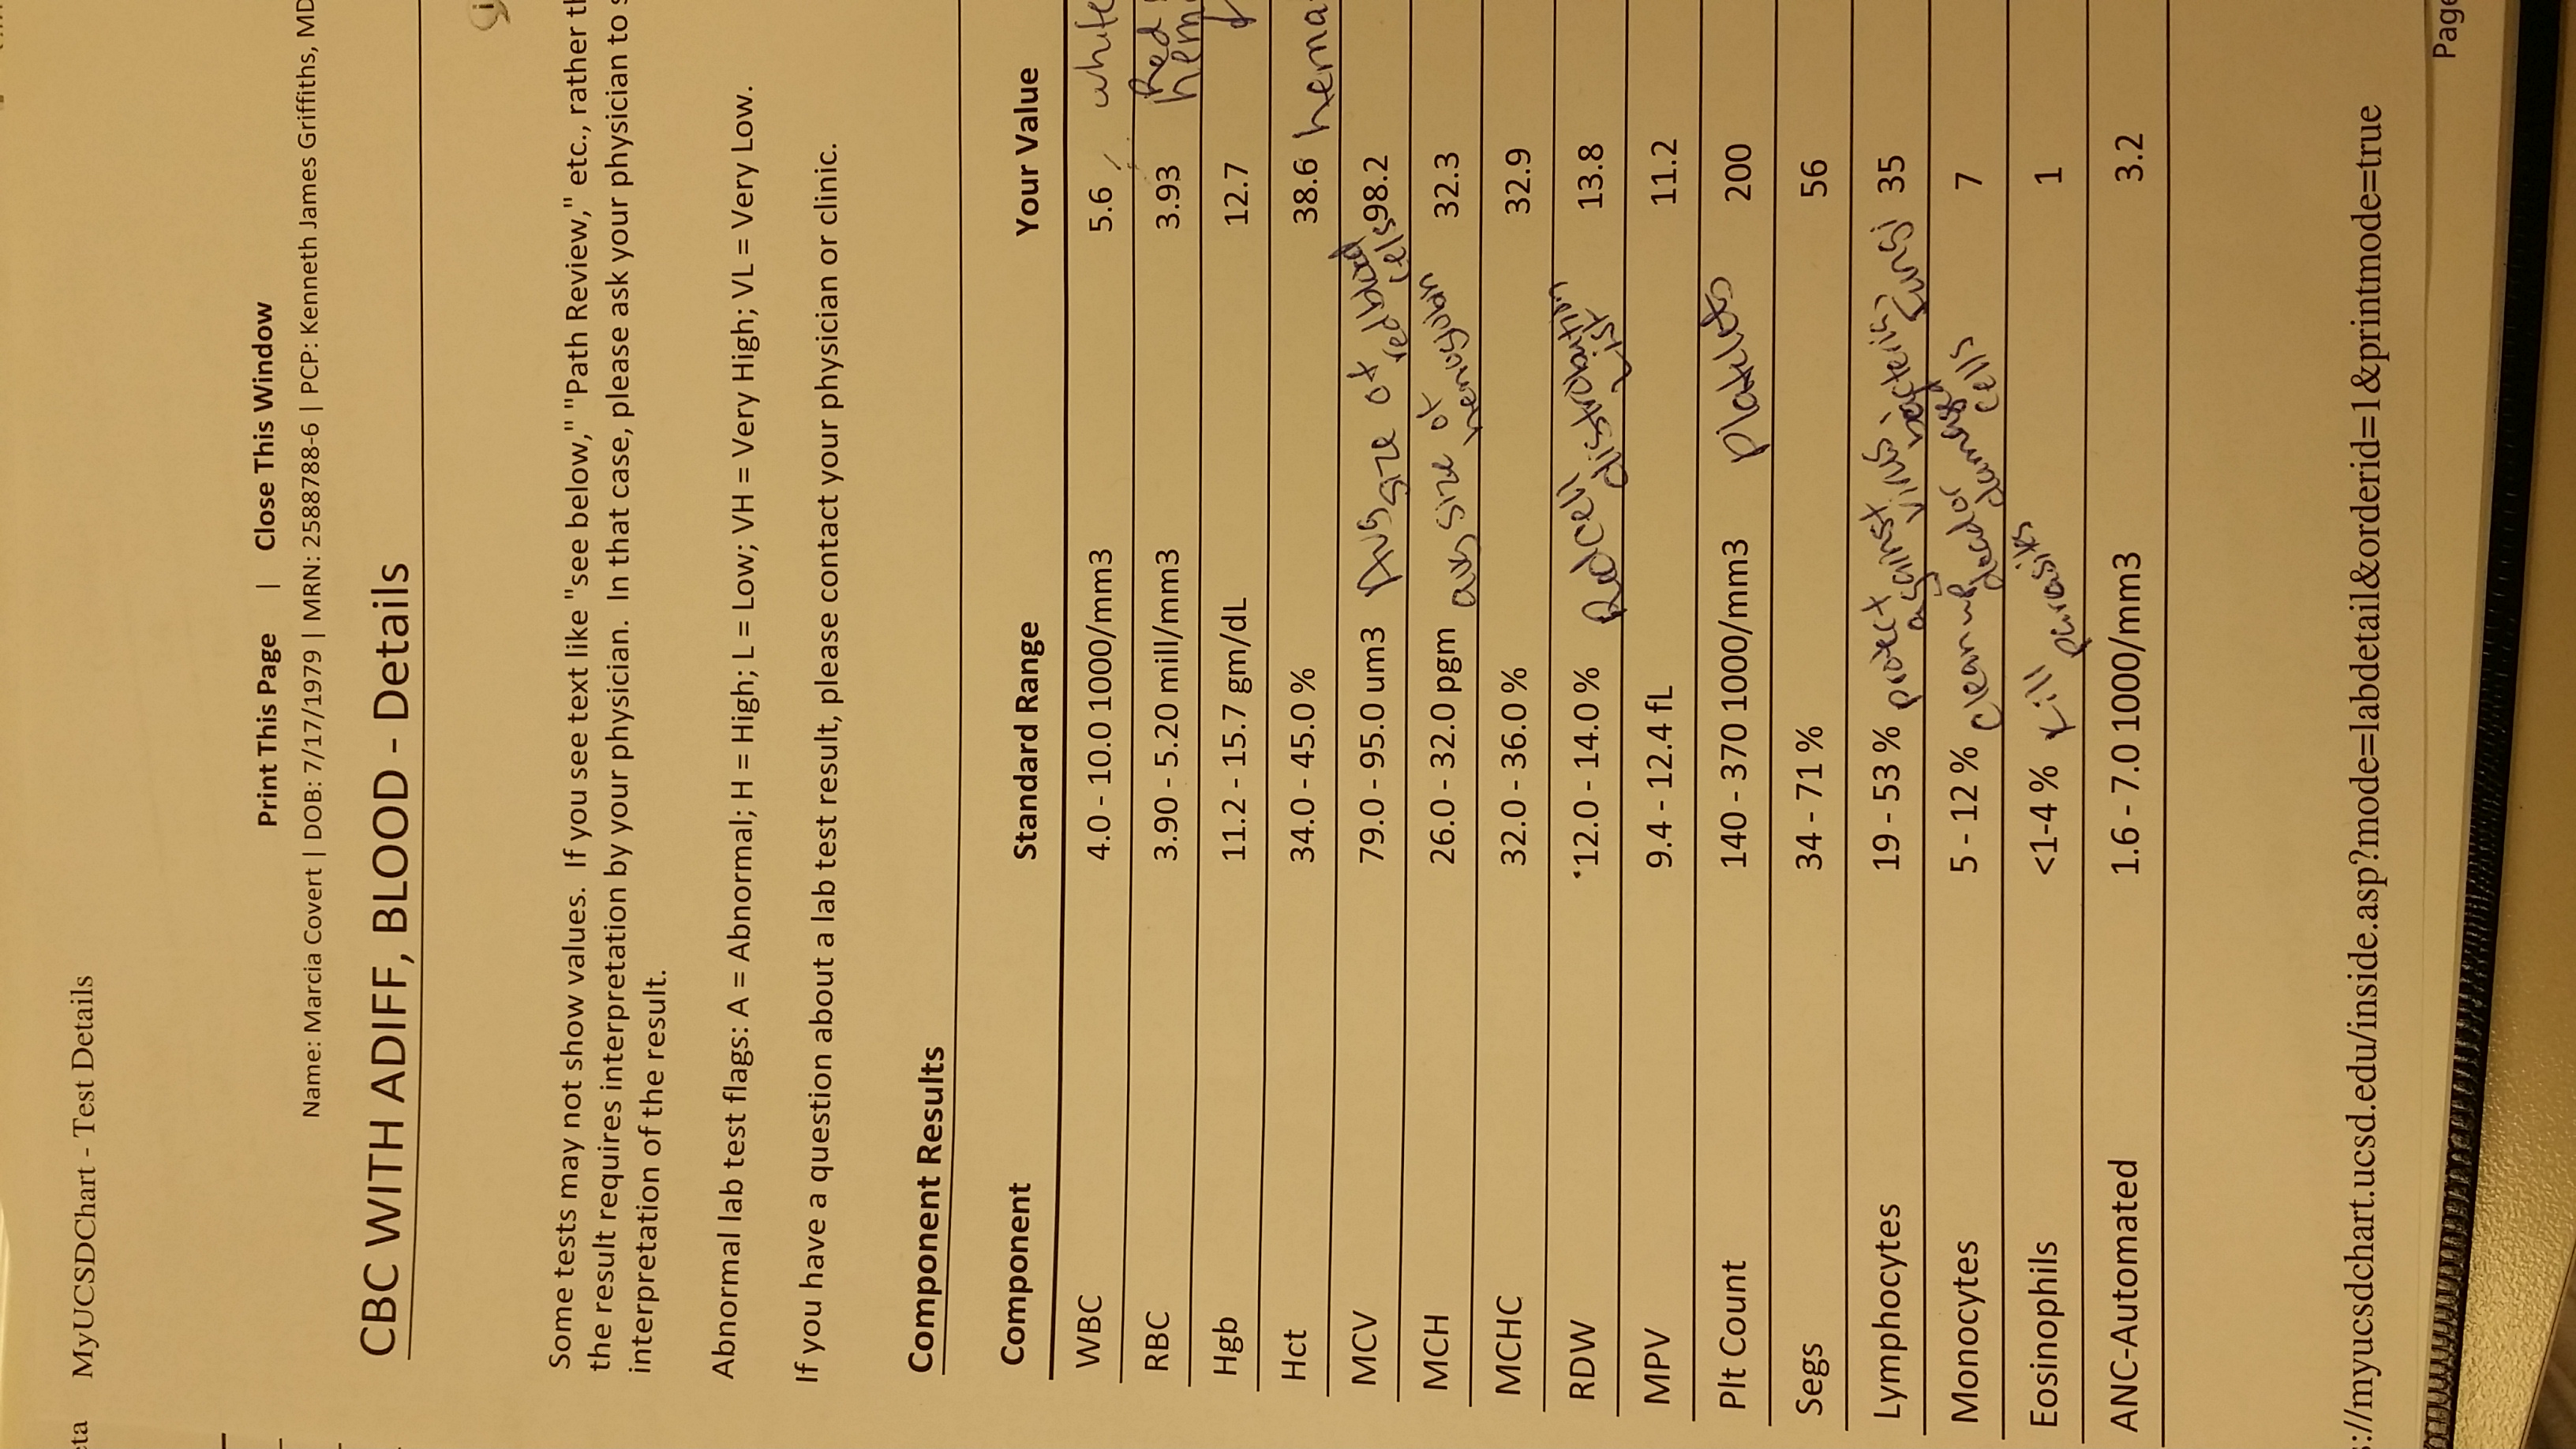 eta MyUCSDChart - Test Details
Print This Page | Close This Window
Name: Marcia Covert | DOB: 7/17/1979 | MRN: 2588788-6 | PCP: Kenneth James Griffiths, MD
CBC WITH ADIFF, BLOOD - Details
Some tests may not show values. If you see text like "see below," "Path Review," etc., rather th
the result requires interpretation by your physician. In that case, please ask your physician to s
interpretation of the result.
Abnormal lab test flags: A = Abnormal; H = High; L = Low; VH = Very High; VL = Very Low.
If you have a question about a lab test result, please contact your physician or clinic.
Component Results
Component Standard Range Your Value
WBC 4.0 - 10.0 1000/mm3 5.6 white
RBC 3.90 - 5.20 mill/mm3 3.93 Red
hem
Hgb 11.2 - 15.7 gm/dL 12.7
Hct 34.0 - 45.0 % 38.6 hema
MCV 79.0 - 95.0 um3 Avg size of red blood cells 98.2
MCH 26.0 - 32.0 pgm avg size of hemoglobin 32.3
MCHC 32.0 - 36.0 % 32.9
RDW 12.0 - 14.0 % Red cell distribution 13.8
MPV 9.4 - 12.4 fL 11.2
Plt Count 140 - 370 1000/mm3 platlets 200
Segs 34 - 71 % 56
Lymphocytes 19 - 53 % protect against virus, bacteria, fungi 35
Monocytes 5 - 12 % clean up dead or damaged cells 7
Eosinophils <1-4 % kill parasites 1
ANC-Automated 1.6 - 7.0 1000/mm3 3.2
s://myucsdchart.ucsd.edu/inside.asp?mode=labdetail&orderid=1&printmode=true
Page